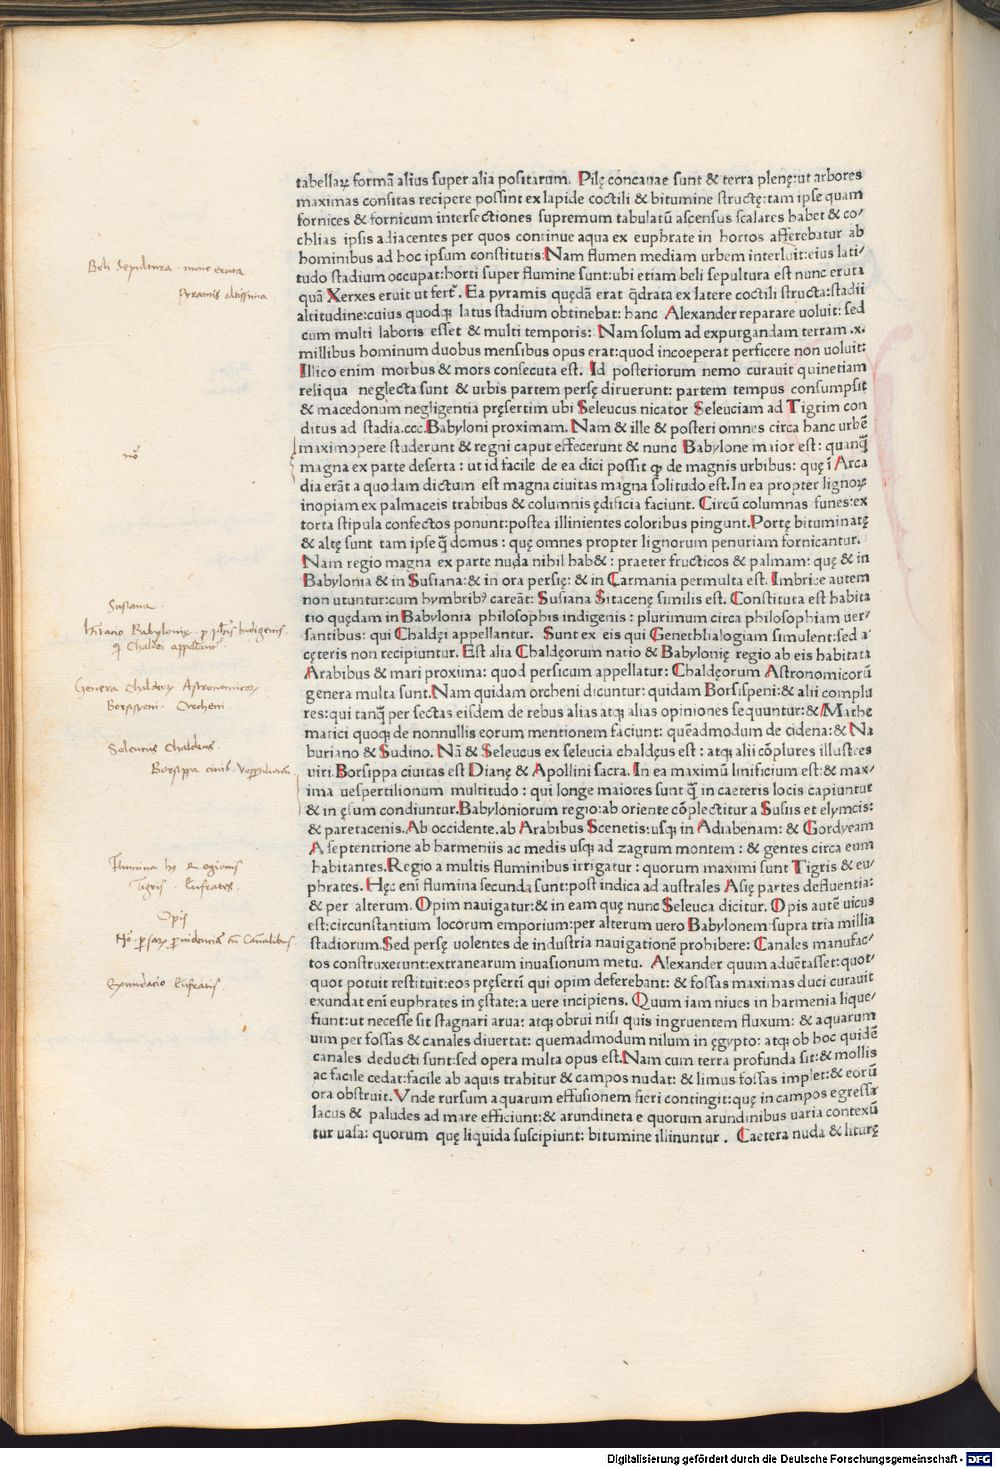 tabellaꝝ formã alius super alia positarum. Pilę concauae sunt & terra plenę:ut arbores
maximas consitas recipere possint ex lapide coctili & bitumine structę:tam ipse quam
fornices & fornicum intersectiones supremum tabulatũ ascensus scalares habet & co/
chlias ipsis adiacentes per quos continue aqua ex euphrate in hortos afferebatur ab
hominibus ad hoc ipsum constitutis:Nam flumen mediam urbem interluit:eius lati/
tudo stadium occupat:horti super flumine sunt:ubi etiam beli sepultura est nunc eruta
quã Xerxes eruit ut fert᷑. Ea pyramis quędã erat q̃drata ex latere coctili structa:stadii
altitudine:cuius quodqꝫ latus stadium obtinebat: hanc Alexander reparare uoluit: sed
cum multi laboris esset & multi temporis: Nam solum ad expurgandam terram .x.
millibus hominum duobus mensibus opus erat:quod incoeperat perficere non uoluit:
Illico enim morbus & mors consecuta est. Id posteriorum nemo curauit quinetiam
reliqua neglecta sunt & urbis partem persę diruerunt: partem tempus consumpsit
& macedonum negligentia pręsertim ubi Seleucus nicator Seleuciam ad Tigrim con
ditus ad stadia.ccc.Babyloni proximam. Nam & ille & posteri omnes circa hanc urbẽ
maximopere studerunt & regni caput effecerunt & nunc Babylone maior est: quanq̃
magna ex parte deserta : ut id facile de ea dici possit qꝫ de magnis urbibus: quę ĩ Arca
dia erãt a quodam dictum est magna ciuitas magna solitudo est.In ea propter lignoꝝ
inopiam ex palmaceis trabibus & columnis ędificia faciunt. Circũ columnas funes:ex
torta stipula confectos ponunt:postea illinientes coloribus pingunt.Portę bituminatę
& altę sunt tam ipse q̃ domus : quę omnes propter lignorum penuriam fornicantur.
Nam regio magna ex parte nuda nihil hab& : praeter fructicos & palmam: quę & in
Babylonia & in Susiana:& in ora persię: & in Carmania permulta est. Imbrice autem
non utuntur:cum hymbribꝰ careãt: Susiana Sitacenę similis est. Constituta est habita
tio quędam in Babylonia philosophis indigenis : plurimum circa philosophiam uer/
santibus: qui Chaldęi appellantur. Sunt ex eis qui Genethlialogiam simulent:sed a
cęteris non recipiuntur. Est alia Chaldęorum natio & Babylonię regio ab eis habitata
Arabibus & mari proxima: quod persicum appellatur: Chaldęorum Astronomicorũ
genera multa sunt.Nam quidam orcheni dicuntur: quidam Borsispeni:& alii complu
res:qui tanq̃ per sectas eisdem de rebus alias atqꝫ alias opiniones sequuntur:& Mathe
matici quoqꝫ de nonnullis eorum mentionem faciunt: quẽadmodum de cidena:& Na
buriano & Sudino. Nã & Seleucus ex seleucia chaldęus est : atqꝫ alii cõplures illustres
uiri.Borsippa ciuitas est Dianę & Apollini sacra. In ea maximũ linificium est:& max/
ima uespertilionum multitudo : qui longe maiores sunt q̃ in caeteris locis capiuntur
& in ęsum condiuntur.Babyloniorum regio:ab oriente cõplectitur a Susiis et elymeis:
& paretacenis.Ab occidente.ab Arabibus Scenetis:usqꝫ in Adiabenam: & Gordyeam
A septentrione ab harmeniis ac medis usqꝫ ad zagrum montem : & gentes circa eum
habitantes.Regio a multis fluminibus irrigatur : quorum maximi sunt Tigris & eu/
phrates. Hęc eni flumina secunda sunt:post indica ad australes Asię partes defluentia:
& per alterum. Opim nauigatur:& in eam quę nunc Seleuca dicitur. Opis autẽ uicus
est:circunstantium locorum emporium:per alterum uero Babylonem supra tria millia
stadiorum.Sed persę uolentes de industria nauigationẽ prohibere: Canales manufac/
tos construxerunt:extranearum inuasionum metu. Alexander quum aduẽtasset:quot/
quot potuit restituit:eos pręsertĩ qui opim deferebant: & fossas maximas duci curauit
exundat enĩ euphrates in ęstate:a uere incipiens. Quum iam niues in harmenia lique/
fiunt:ut necesse sit stagnari arua: atqꝫ obrui nisi quis ingruentem fluxum: & aquarum
uim per fossas & canales diuertat: quemadmodum nilum in ęgypto: atqꝫ ob hoc quidẽ
canales deducti sunt:sed opera multa opus est.Nam cum terra profunda sit:& mollis
ac facile cedat:facile ab aquis trahitur & campos nudat: & limus fossas implet:& eorũ
ora obstruit. Vnde rursum aquarum effusionem fieri contingit:quę in campos egressa
lacus & paludes ad mare efficiunt:& arundineta e quorum arundinibus uaria contexũ
tur uasa: quorum quę liquida suscipiunt: bitumine illinuntur . Caetera nuda & liturę
Beli Sepultura . nunc eruta
Pyramis altissima
Susiana .
qi Chaldei appellant᷑
Genera Chaldeoꝝ Astronomicoꝝ
Borsispeni . Orcheni .
Seleucus Chaldeus
Opis
Exundacio Eufratis .
Digitalisierung gefördert durch die Deutsche Forschungsgemeinschaft - DFG